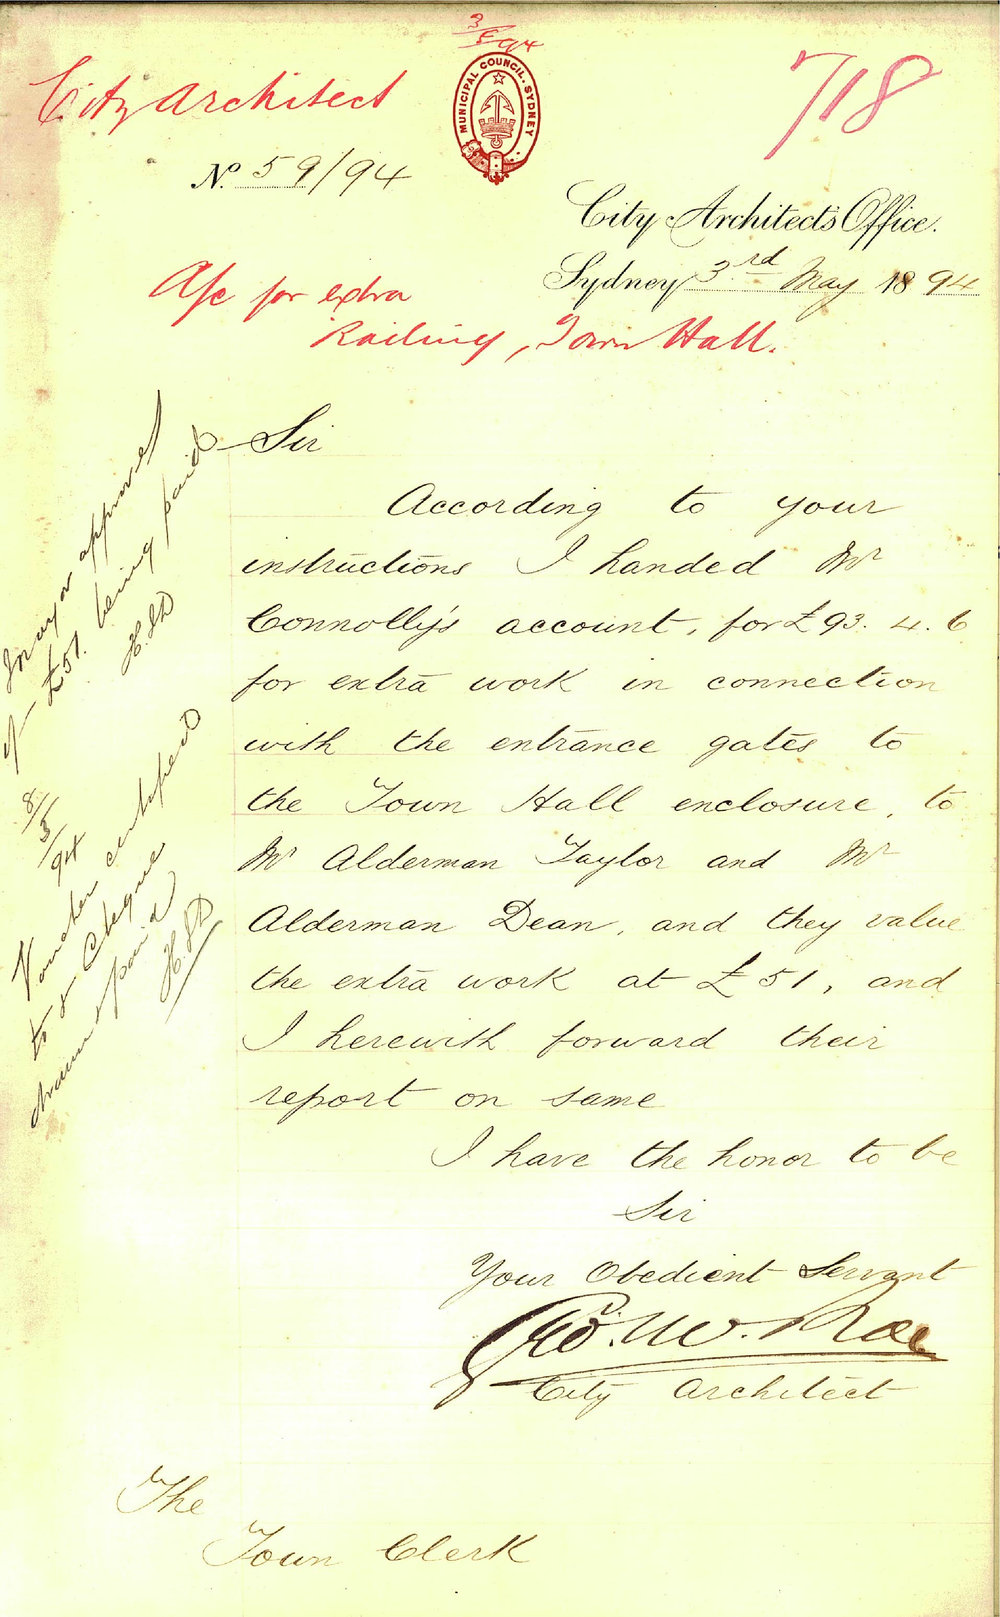 3/5/94
City Architect
MUNICIPAL COUNCIL. SYDNEY
718
No. 59/94
City Architect's Office.
Sydney 3rd May 1894
A/c for extra
Railing, Town Hall.
Sir
According to your
instructions I handed Mr
Connolly's account, for £93. 4. 6
for extra work in connection
with the entrance gates to
the Town Hall enclosure, to
Mr Alderman Taylor and Mr
Alderman Dean, and they value
the extra work at £51, and
I herewith forward their
report on same
I have the honor to be
Sir
Your Obedient Servant
Geo. McRae
City Architect
The
Town Clerk
Mayor approves
of £51. being paid
H.S.D
8/5/94
Voucher certified
to & Cheque
drawn & paid
H.S.D